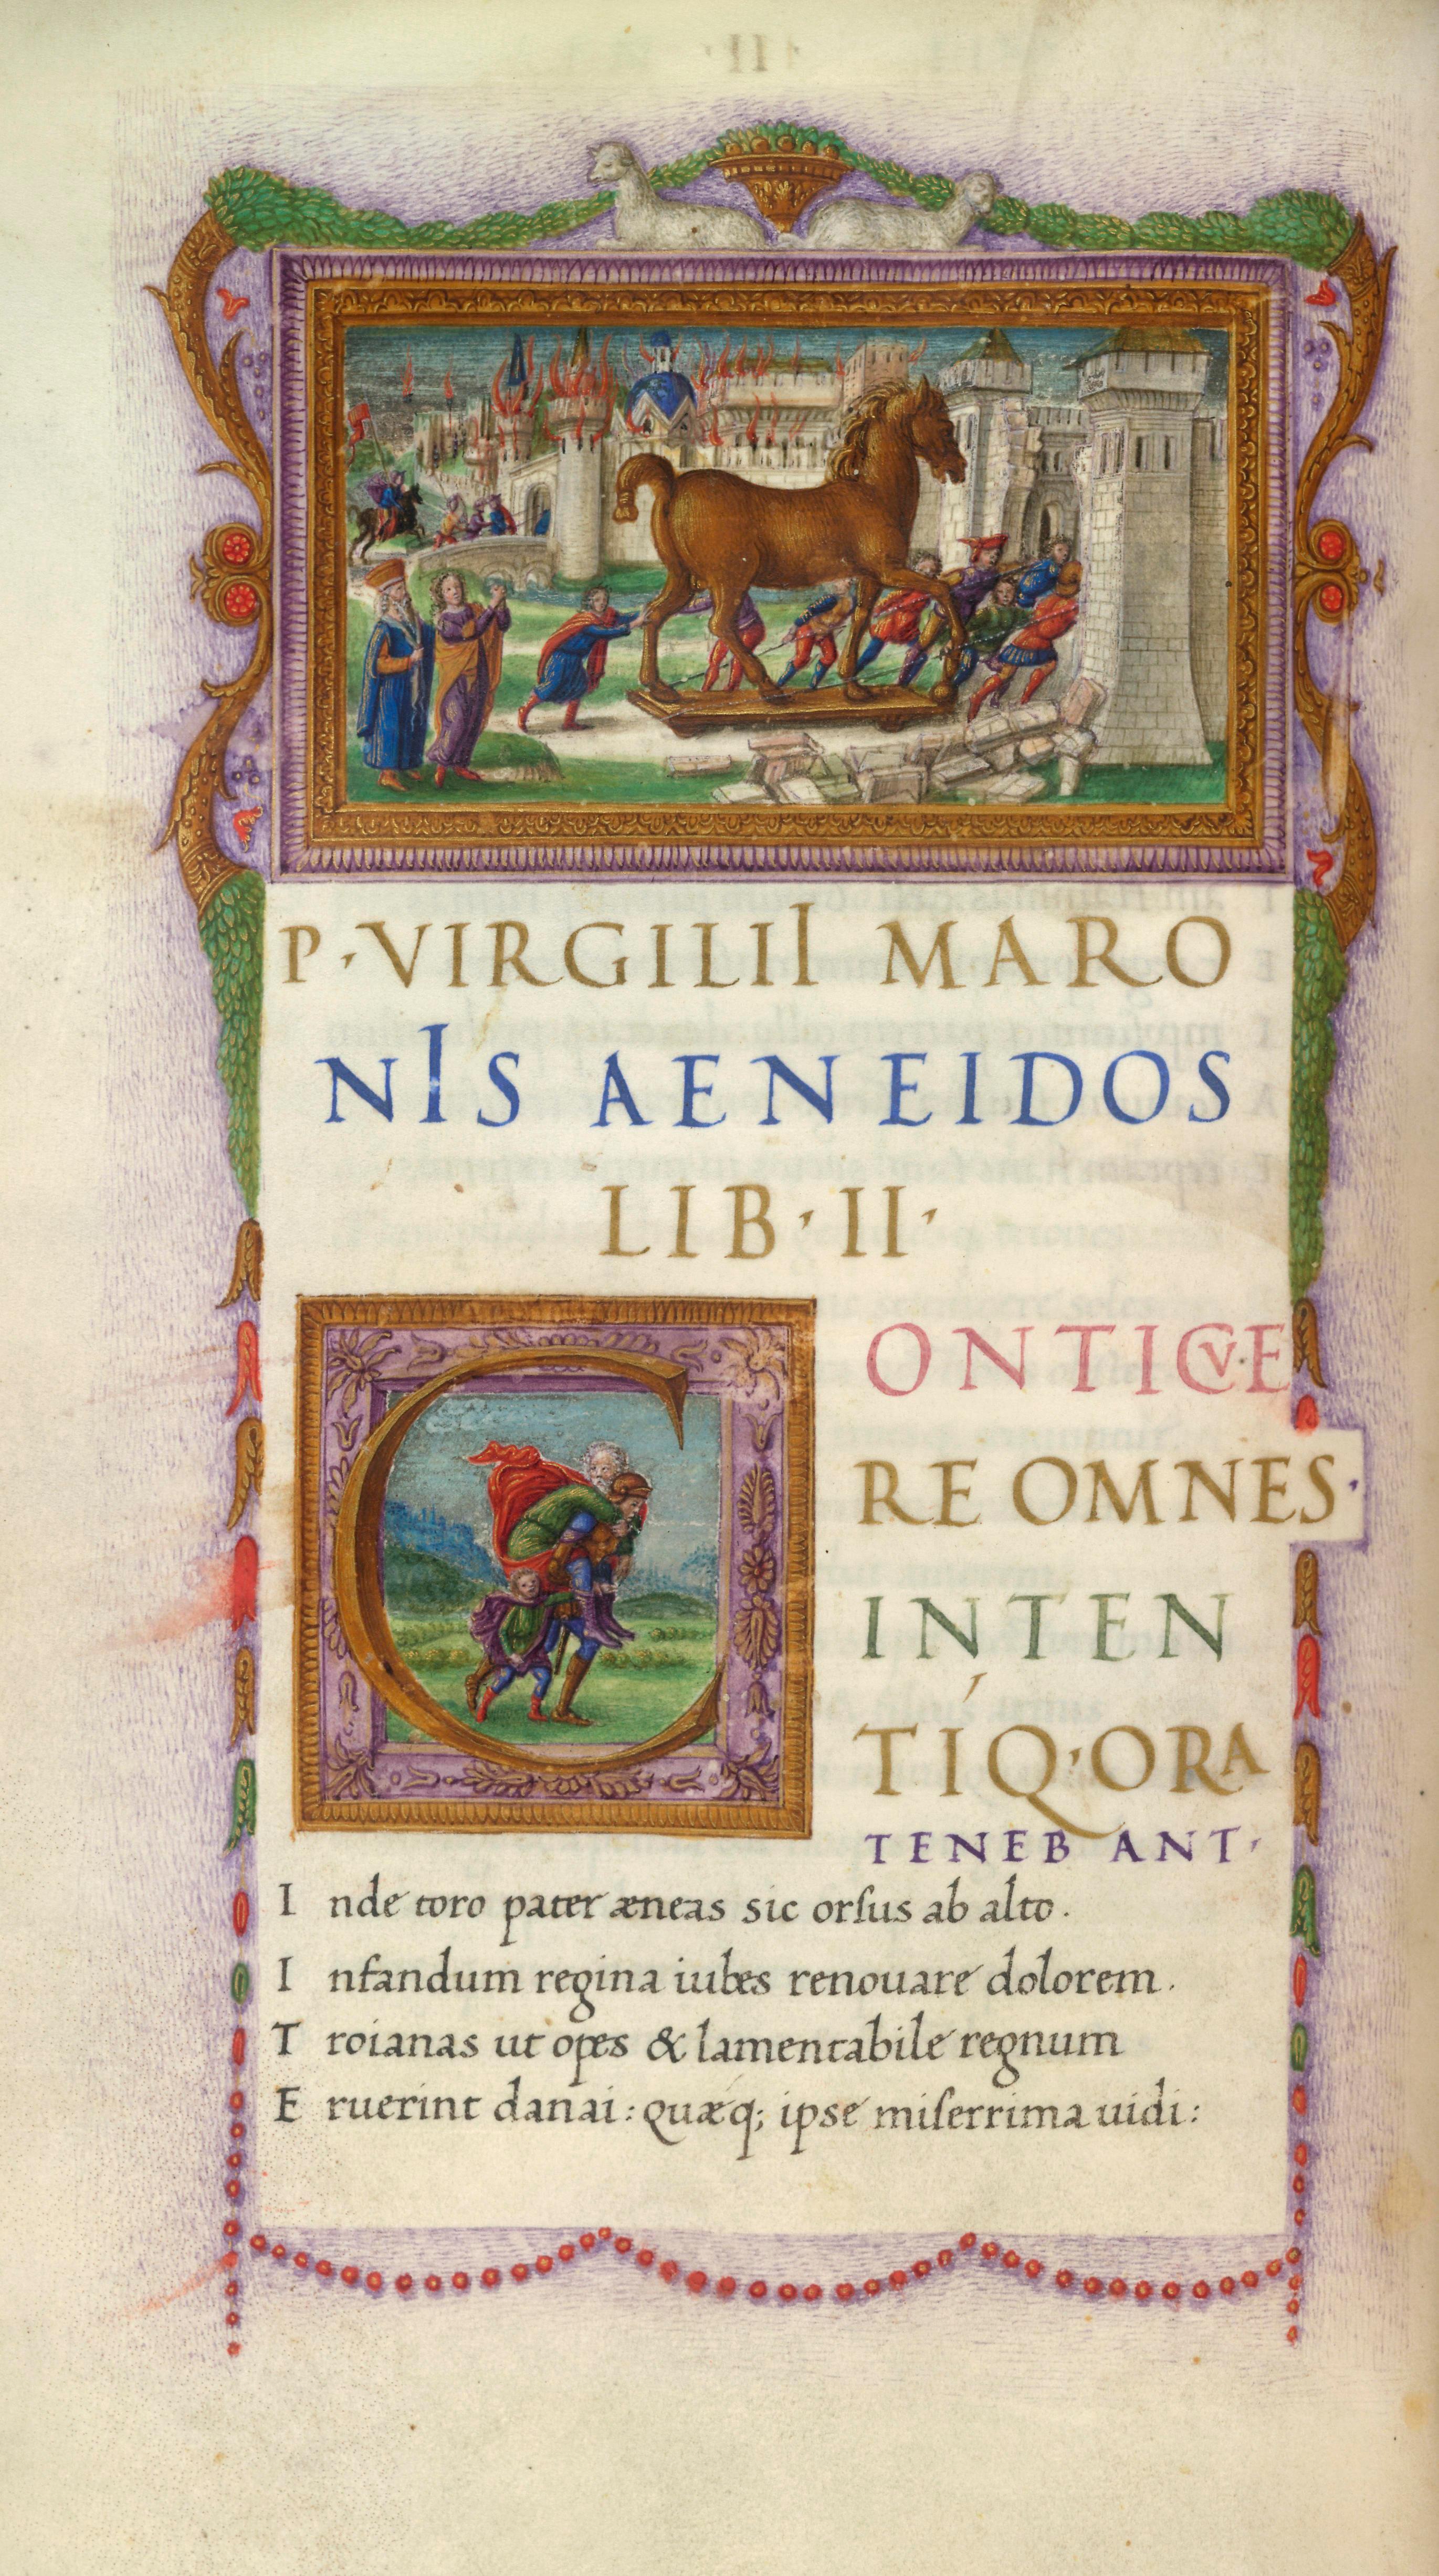 P·VIRGILII MARO
NIS AENEIDOS
LIB·II·
CONTICVE
RE OMNES·
INTEN
TIQ·ORA
TENEB ANT·
I nde toro pater æneas sic orſus ab alto.
I nfandum regina iubes renouare dolorem.
T roianas ut opes & lamentabile regnum
E ruerint danai: quæq; ipse miſerrima uidi: